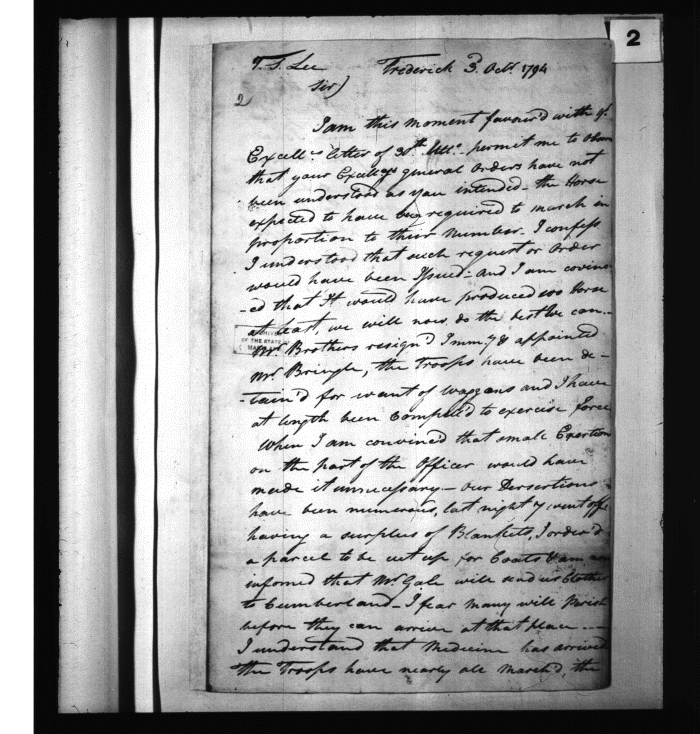 2
T. S. Lee Frederick 3. Octr. 1794
Sir)
2
I am this moment favour'd with yr.
Excellcs letter of 30th Ulto. permit me to Obser
that your Excellcys general Orders have not
been understood as you intended - the Horse
expected to have been required to march in
proportion to their Number. I confess
I understood that such request or Order
would have been Issued - and I am convinc
-ed that It would have produced 100 Horse
at least, we will now do the best We can -
Mr. Brothers resign'd I immy. appointed
Mr. Bringle, the Troops have been de -
-tain'd for want of waggons and I have
at length been Compell'd to exercise force
When I am convinc'd that small Exertion
on the part of the Officer would have
made it unnecessary - our Desertions
have been numerous, last night 7 went off,
having a surplus of Blankets, I order'd
a parcel to be cut up for Coats & am
informed that Mr. Gale will send us Clothes
to Cumberland - I fear many will Perish
before they can arrive at that place -
I understand that Medicine has arrived
the Troops have nearly all March'd, the
OF THE STATE